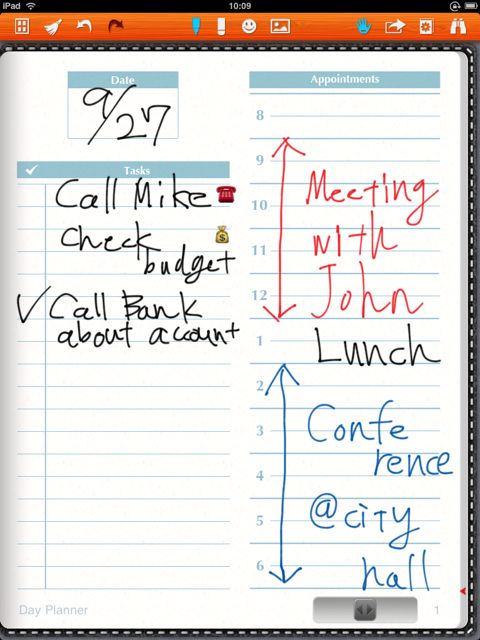 iPad
10:09
Date
9/27
Tasks
Call Mike
Check
budget
Call Bank
about account
Appointments
8
9
Meeting
10
with
11
John
12
1
Lunch
2
3
Confe
rence
4
@city
5
hall
6
Day Planner
1